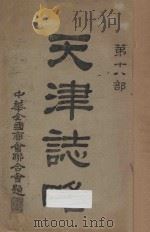 第十八部
天津誌略
中華全國商會聯合會題